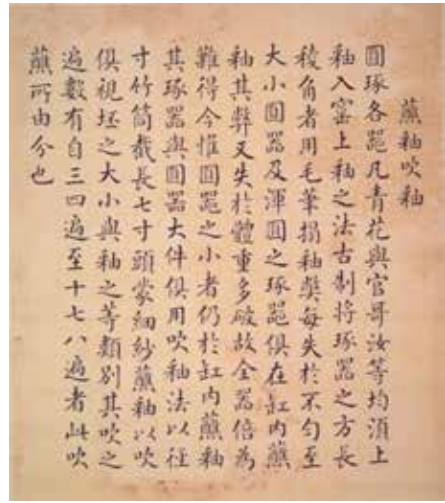 蘸釉吹釉
圓琢各器凡青花與官哥汝等均須上
釉入窰上釉之法古制將琢器之方長
稜角者用毛筆搨釉獘每失於不勻至
大小圓器及渾圓之琢器俱在缸內蘸
釉其弊又失於體重多破故全器倍為
難得今惟圓器之小者仍於缸內蘸釉
其琢器與圓器大件俱用吹釉法以徑
寸竹筒截長七寸頭蒙細紗蘸釉以吹
俱視坯之大小與釉之等類別其吹之
遍數有自三四遍至十七八遍者此吹
蘸所由分也